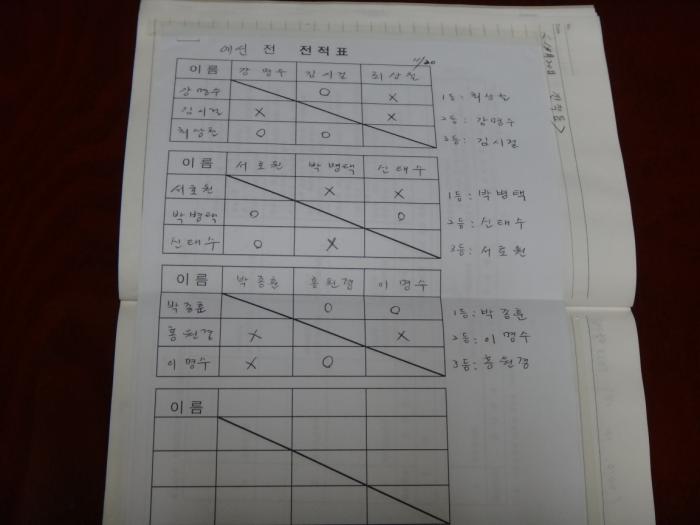 예선 전 전적표
11/20
이름 강명수 김시절 최상훈
강명수 O X
김시절 X X
최상훈 O O
1등: 최상훈
2등: 강명수
3등: 김시절
이름 서호원 박병택 신태수
서호원 X X
박병택 O O
신태수 O X
1등: 박병택
2등: 신태수
3등: 서호원
이름 박종훈 홍원경 이명수
박종훈 O O
홍원경 X X
이명수 X O
1등: 박종훈
2등: 이명수
3등: 홍원경
이름